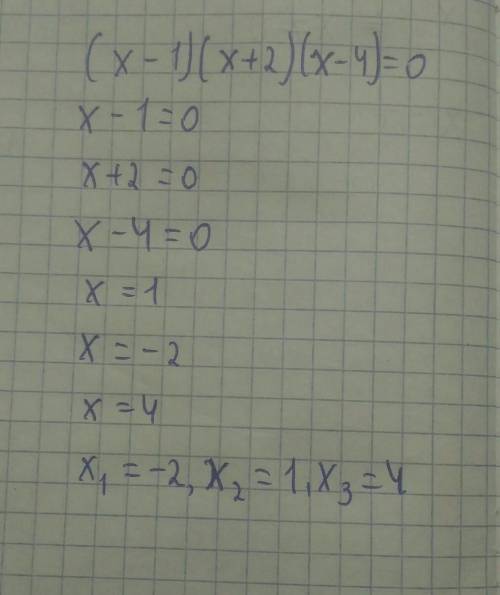 (x-1)(x+2)(x-4)=0
x-1=0
x+2=0
x-4=0
x=1
x=-2
x=4
x₁=-2, x₂=1, x₃=4